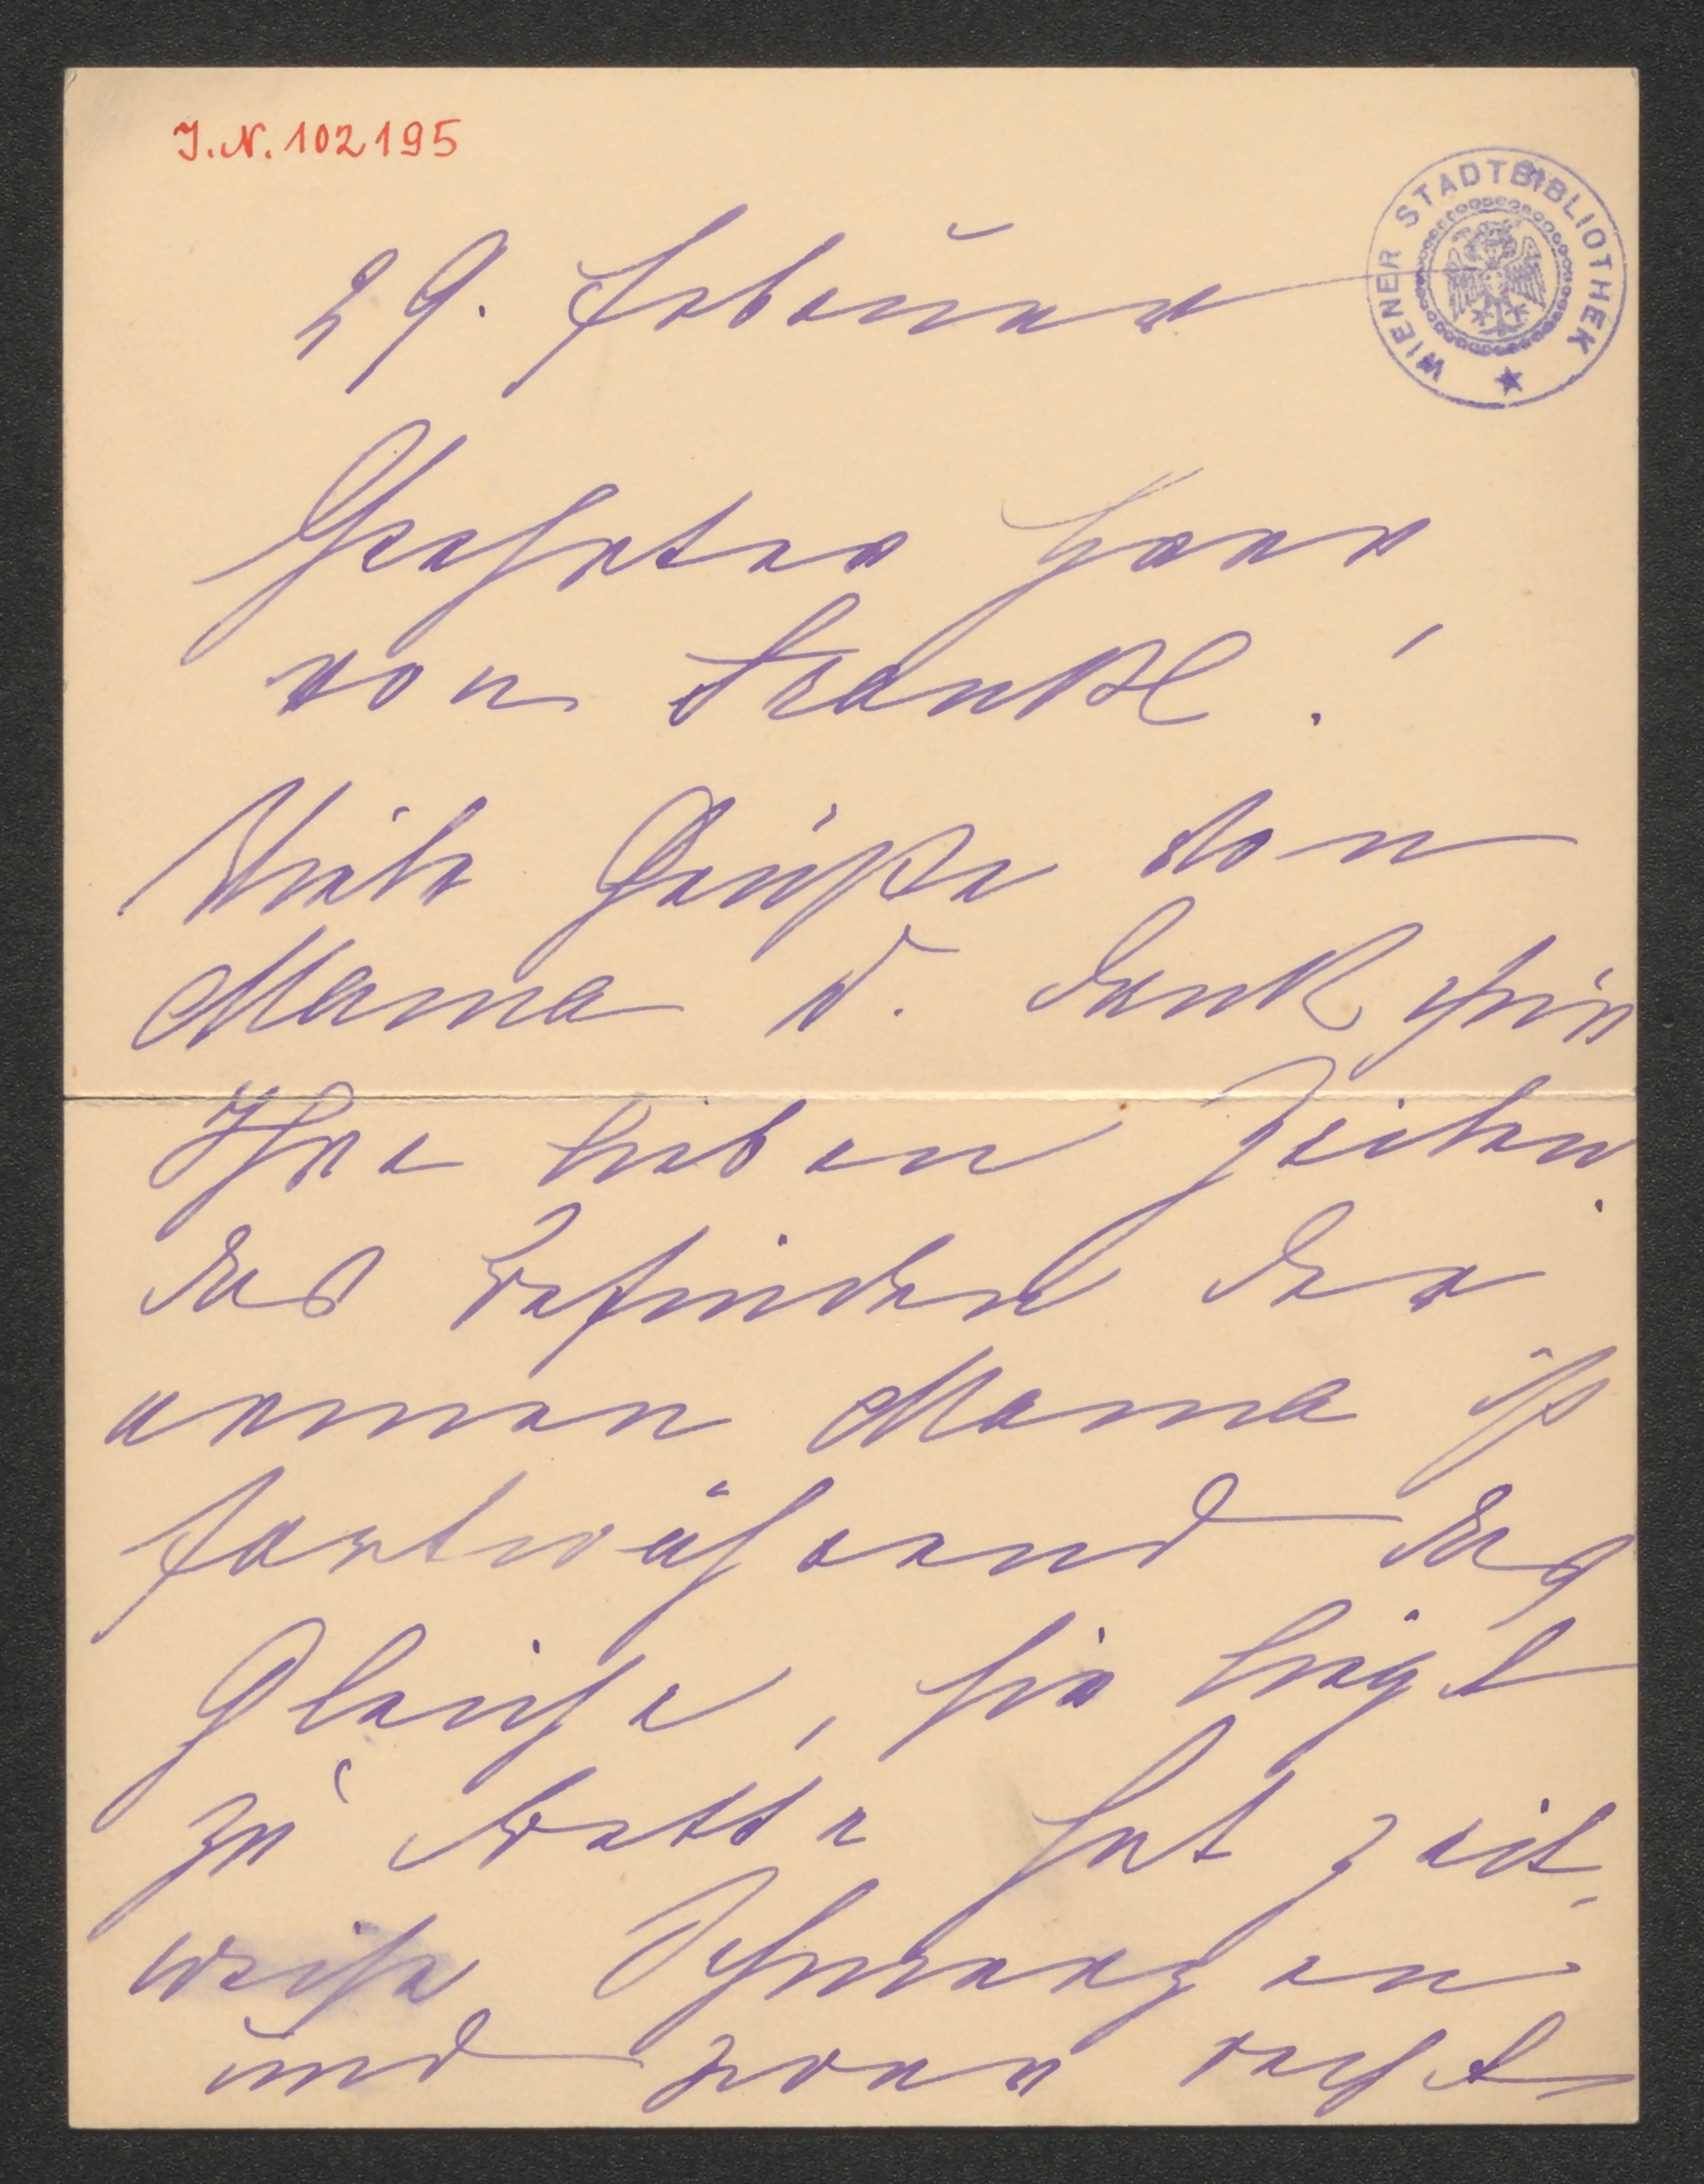 J.N. 102195
WIENER STADTBIBLIOTHEK
29. Februar
Geehrter Herr
von Frankl!
Viele Grüße von
Mama u. Dank für
Ihre lieben Zeilen.
das Befinden der
armen Mama ist
fortwährend das
Gleiche, sie liegt
zu Bette hat zeit-
weise Schmerzen
und zwar recht